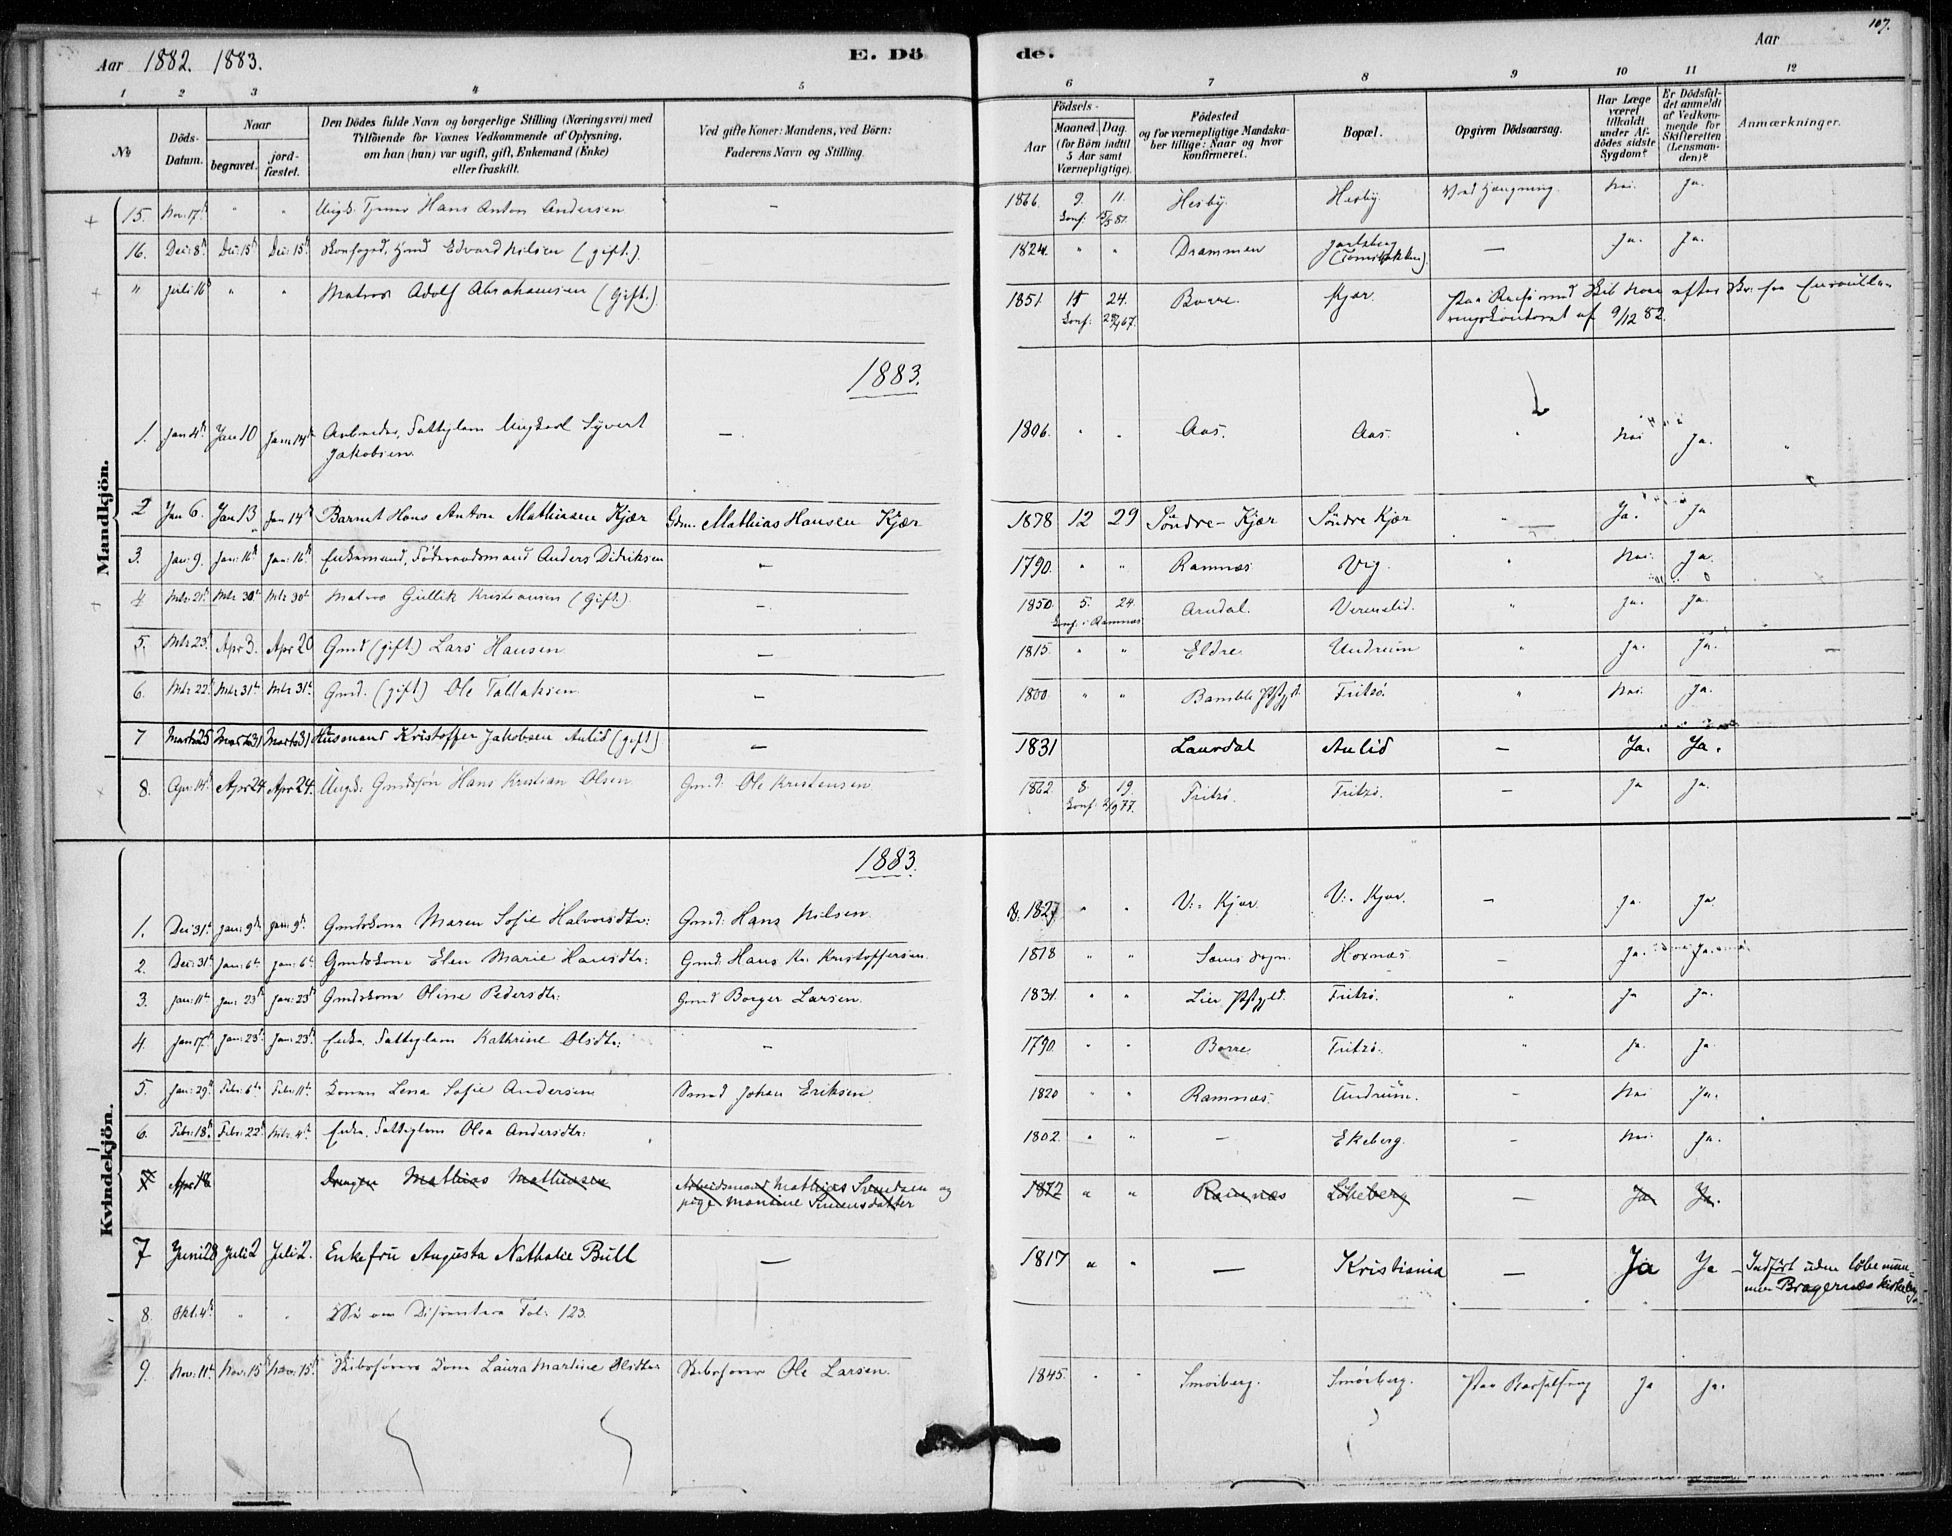 107.
Aar 1882. 1883. E. Dö de. Aar
1 2 3 4 5 6 7 8 9 10 11 12
No Döds-Datum. Naar begravet. jordfæstet. Den Dödes fulde Navn og borgerlige Stilling (Næringsvei) med Tilföiende for Voxnes Vedkommende af Oplysning, om han (hun) var ugift, gift, Enkemand (Enke) eller fraskilt. Ved gifte Koner: Mandens, ved Börn: Faderens Navn og Stilling. Födsels- Aar Maaned. Dag. (for Börn indtil 5 Aar samt Værnepligtige). Födested og for værnepligtige Mandskaber tillige: Naar og hvor konfirmeret. Bopæl. Opgiven Dödsaarsag. Har Læge været tilkaldt under Afdödes sidste Sygdom? Er Dödsfaldet anmeldt af Vedkommende for Skifteretten (Lensmanden)? Anmærkninger.
Mandkjön.
15. Nov: 17d " " Ungk. Tjener Hans Anton Andersen — 1866. 9. 11. Hesby. Hesby. Ved Hængning. Nei. Ja.
Konf: 81
16. Dec: 8d Dec: 15d Dec: 15d Skonfoged, Gmd Edvard Nilsen (gift.). — 1824. " " Drammen Jarlsberg — Ja. Ja.
" Juli 16d " " Matros Adolf Abrahamsen (Gift.) 1851 24. Borre. Kjær. Paa Reise med Skib
Konf: 67. af 9/12 82.
1883.
1. Jan 4d Jan 10 Jan: 14d Arbeider, Fattiglem Ungkarl Syvert Jakobsen. — 1806. " " Aas. Aas. " Nei Ja. "
2 Jan 6. Jan 13 Jan 14d Barnet Hans Anton Mathiasen Kjær Gdm. Mathias Hansen Kjær 1878 12 29 Söndre-Kjær Söndre Kjær — Ja. Ja
3. Jan: 9. Jan: 16d Jan: 16d Enkemand, Anders Didriksen — 1790. " " Ramnæs Vig. " Nei. Ja.
4 Mts: 21d Mts 30d Mts 30d Matros Gullik Kristiansen (Gift.) — 1850. 5. 24. Arendal. " Ja. Ja.
Konf. i Ramnæs
5. Mts 23d Apr 3. Apr 20 Gmd (gift) Lars Hansen — 1815. " " Eldre. Undrum " Ja. Ja. —
6. Mts 22d Mts 31d Mts 31d Gmd. (gift) Ole Tallaksen — 1800. " " Bamble Pstgjd. Fritzö. " Nei. Ja.
7 Marts 25 Marts 31 Marts 31 Husmand Kristoffer Jakobsen Aulid (gift) — 1831 Laurdal Aulid — Ja. Ja.
8. Apr: 14d Apr 24 Apr 24. Ungk: Gmdssön Hans Kristian Olsen Gmd: Ole Kristensen 1862. 8. 19. Fritzö. Fritzö. — Ja Ja.
Konf: 2/9 77.
Kvindekjön.
1883.
1. Dec: 31d Jan: 9d Jan: 9d Gmdskone Maren Sofie Halvorsdtr: Gmd: Hans Nilsen. 1827 " " V: Kjær V: Kjær. — Ja. Ja.
2. Dec: 31d Jan: 6d Jan: 6d Gmdskone Elen Marie Hansdtr: Gmd: Hans Kr. Kristoffersen. 1818 " " Sems Sogn. Hoxnæs — Ja. Ja
3. Jan: 11d Jan: 23d Jan: 23d Gmdskone Oline Pedersdtr: Gmd Borger Larsen. 1831. " " Lier Pstgjd. Fritzö. " Ja Ja.
4. Jan 17d Jan: 23d Jan: 23d Enke, Fattiglem Kathrine Olsdtr: — 1790. " " Borre. Fritzö. " Ja. Ja.
5. Jan: 29d Febr: 6d Febr: 11d Konen Lena Sofie Andersen Smed Johan Eriksen. 1820 " " Ramnæs. Undrum. — Nei Ja.
6. Febr: 18d. Febr: 22d Mts: 4d Enke, Fattiglem Olea Andersdtr: 1802. " " — Ekeberg. — Nei. Ja.
7 Apr 18 Drengen Mathias Mathiasen Arbeidsmand Mathias Svendsen og pige Martine Simensdatter 1872 " " Ramnæs Lökeberg — Ja Ja.
7 Juni 28 Juli 2 Juli 2. Enkefru Augusta Nathalie Bull — 1817 " " — Kristiania — Ja Ja Indfört uden löbenummer Bragernæs kirkebog
8. Okt. 4d " " Se om Dissentere Fol: 123.
9. Nov: 11d Nov: 15d Nov: 15d Skibsförers Kone Laura Martine Olsdtr Skibsförer Ole Larsen. 1845. " " Smörberg. Smörberg. Paa Barselseng Ja Ja.